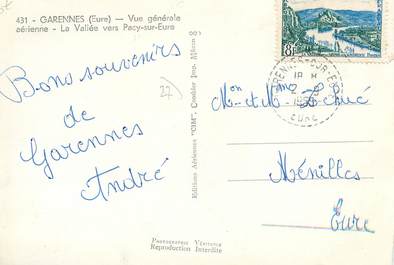 431 - GARENNES (Eure) — Vue générale
aérienne - La Vallée vers Pacy-sur-Eure
Bons souvenirs
de
Garennes
André
27
Editions Aériennes "CIM", Combier Imp. Mâcon
8F
18 H
EURE
Mr et Mme
Ménilles
Eure
Photographie Véritable
Reproduction Interdite